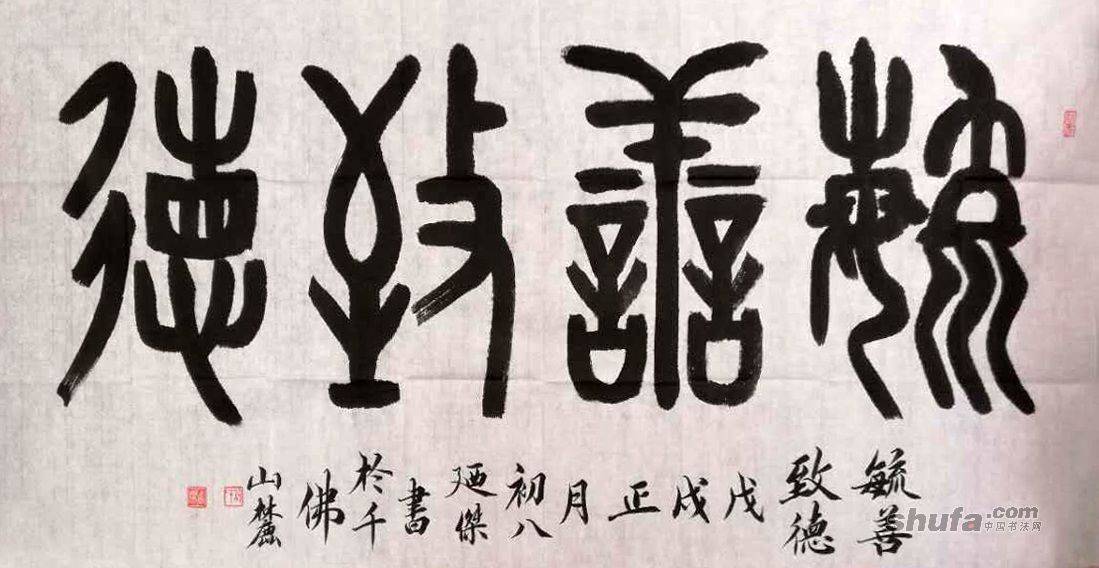 毓善致德
毓善
致德
戊
戌
正
月
初八
廼傑
書
於千
佛
山麓
shufa.com
中国书法网